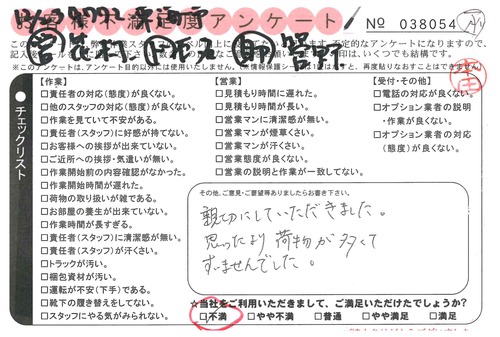 お客様不満足度アンケート
No 038054
※このアンケートは、アンケート目的以外には使用いたしません。
チェックリスト
【作業】
□責任者の対応(態度)が良くない。
□他のスタッフの対応(態度)が良くない。
□作業を見ていて不安がある。
□責任者(スタッフ)に好感が持てない。
□お客様への挨拶が出来ていない。
□ご近所への挨拶・気遣いが無い。
□作業開始前の内容確認がなかった。
□作業開始時間が遅れた。
□荷物の取り扱いが雑である。
□お部屋の養生が出来ていない。
□作業時間が長すぎる。
□責任者(スタッフ)に清潔感が無い。
□責任者(スタッフ)が汗くさい。
□トラックが汚い。
□梱包資材が汚い。
□運転が不安(下手)である。
□靴下の履き替えをしてない。
□スタッフにやる気がみられない。
【営業】
□見積もり時間に遅れた。
□見積もり時間が長い。
□営業マンに清潔感が無い。
□営業マンが煙草くさい。
□営業マンが汗くさい。
□営業態度が良くない。
□営業の説明と作業が一致してない。
【受付・その他】
□電話の対応が良くない。
□オプション業者の説明
・作業が良くない。
□オプション業者の対応
(態度)が良くない。
その他、ご意見・ご要望等ありましたらお書き下さい。
親切にしていただきました。
思ったより荷物が多くて
すいませんでした。
☆当社をご利用いただきまして、ご満足いただけたでしょうか?
□不満 □やや不満 □普通 □やや満足 □満足